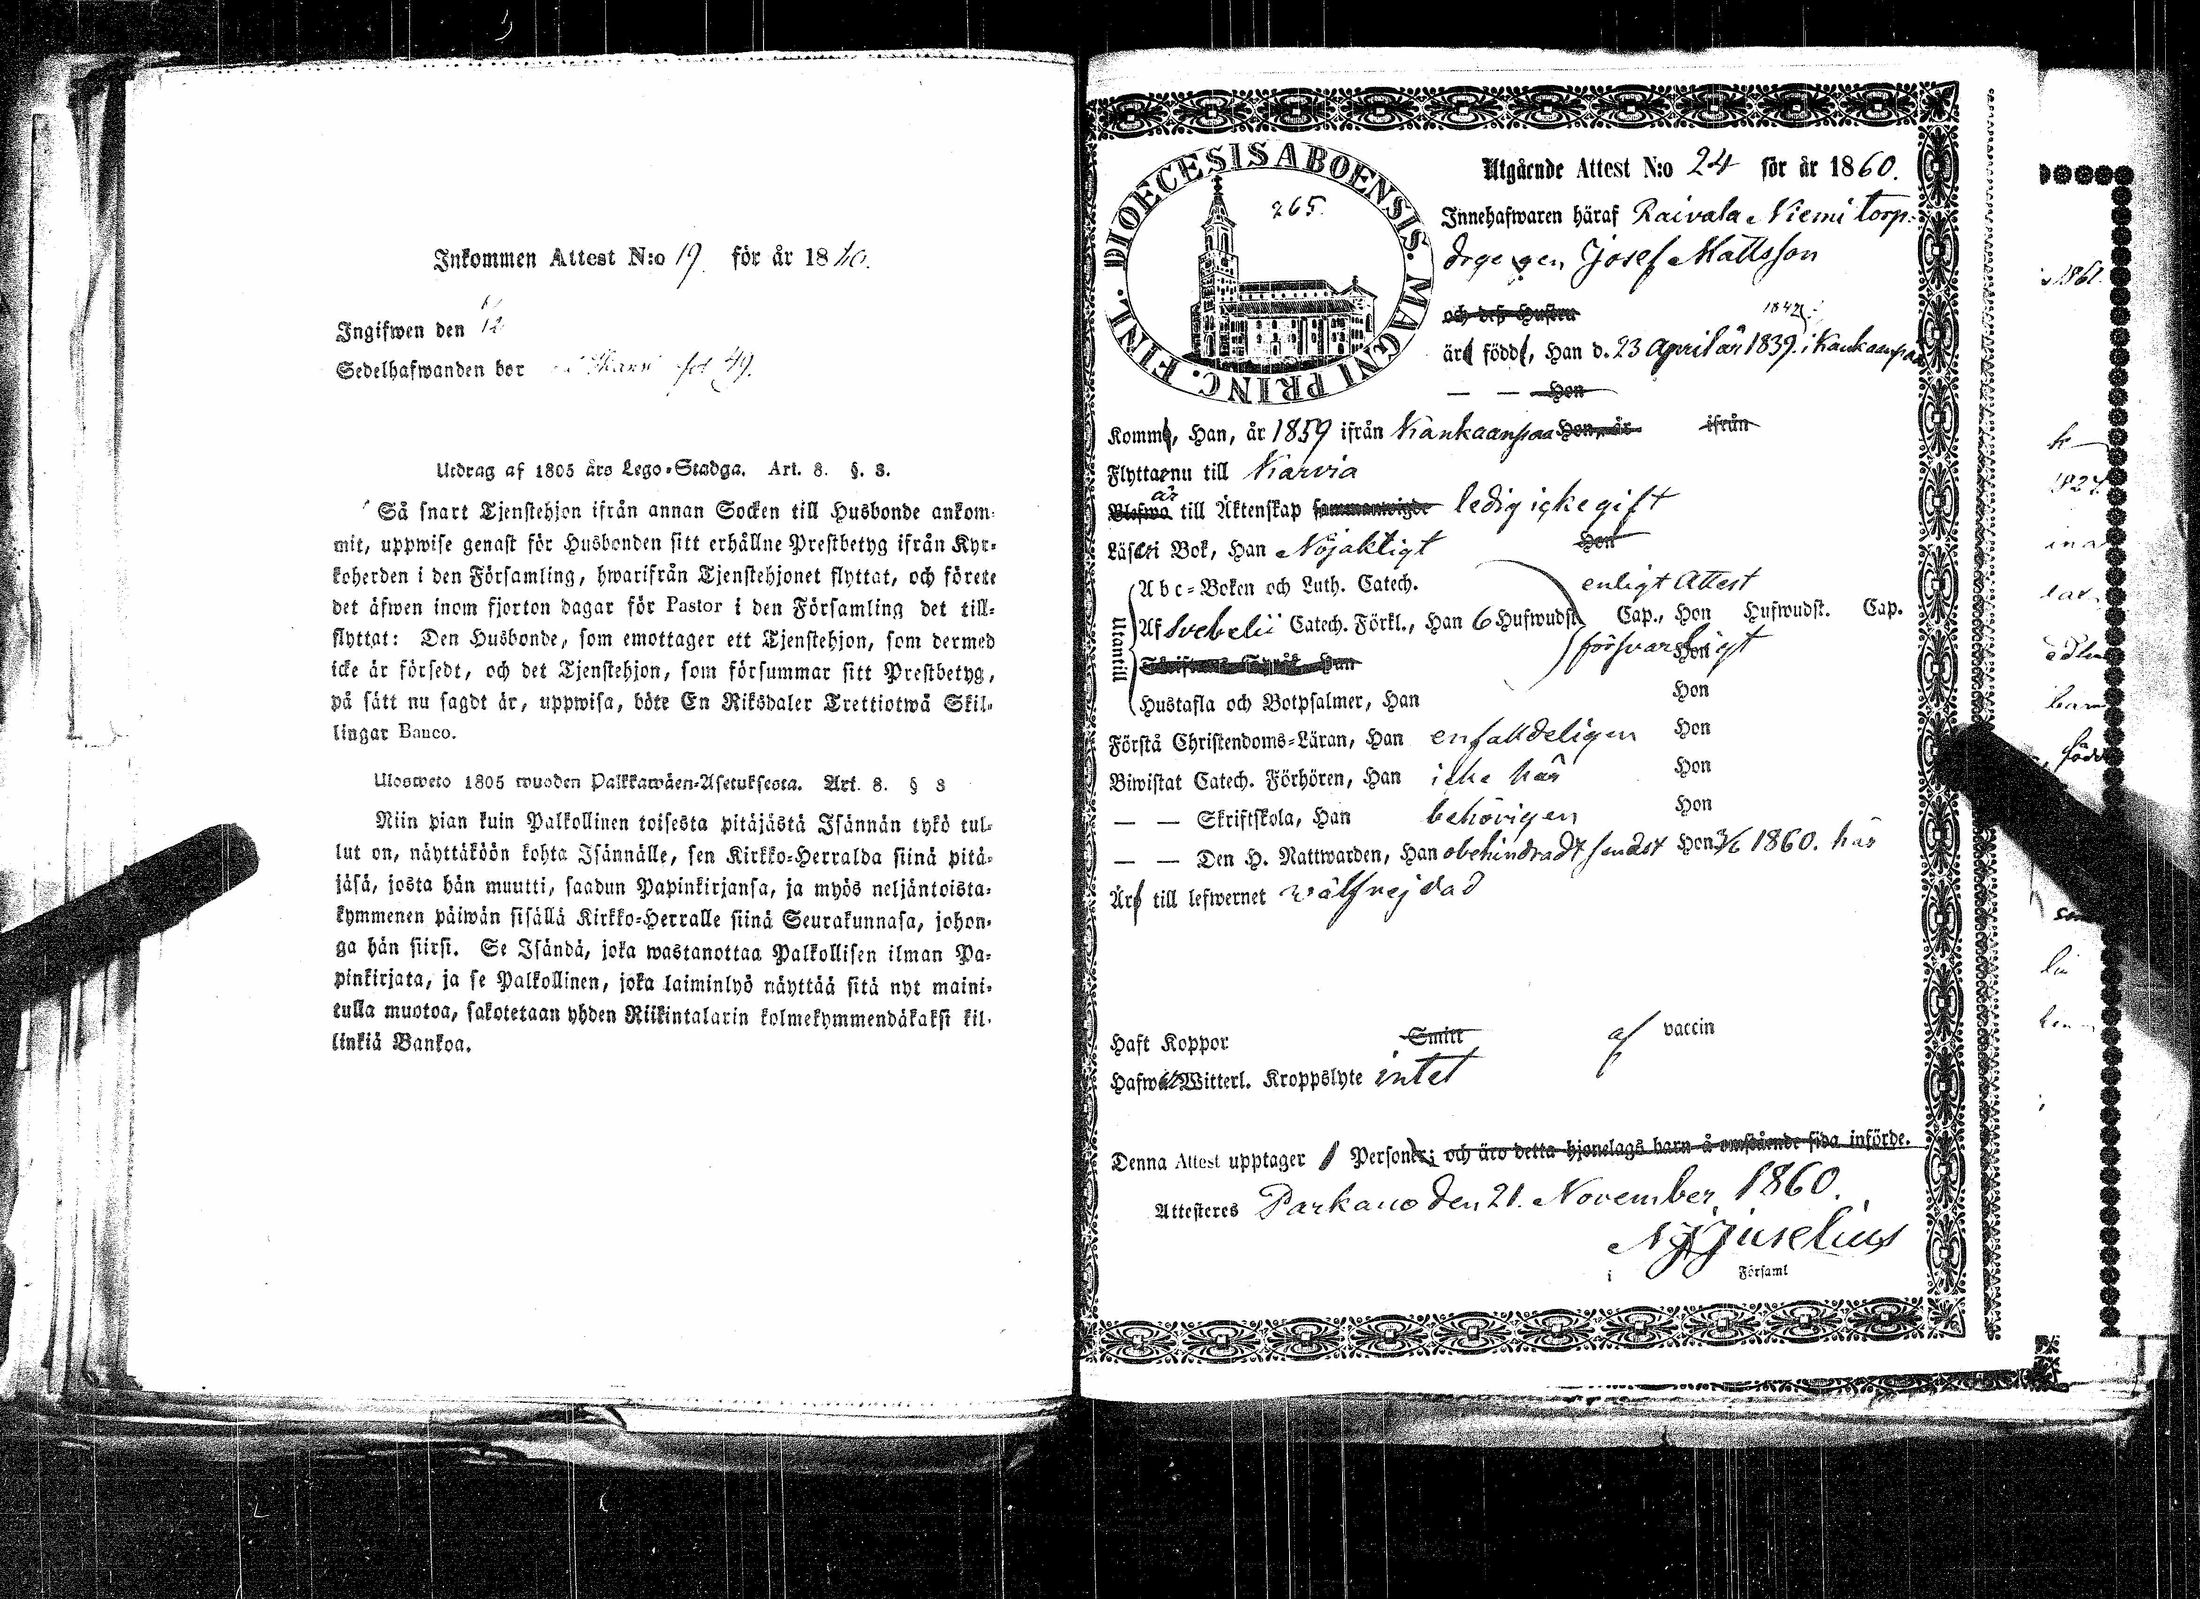 Inkommen Attest N:o 19. för år 1860.
Ingifwen den 12
Sedelhafwanden bor fol 49.
Utdrag af 1805 års Lego-Stadga. Art. 8. §. 8.
Så snart Tjenstehjon ifrån annan Socken till Husbonde ankom-
mit, uppwise genast för Husbonden sitt erhållne Prestbetyg ifrån Kyr-
koherden i den Församling, hwarifrån Tjenstehjonet flyttat, och förete
det äfwen inom fjorton dagar för Pastor i den Församling det till-
flyttat: Den Husbonde, som emottager ett Tjenstehjon, som dermed
icke är försedt, och det Tjenstehjon, som försummar sitt Prestbetyg,
på sätt nu sagdt är, uppwisa, böte En Riksdaler Trettiotwå Skil-
lingar Banco.
Ulosweto 1805 wuoden Palkkawäen-Asetuksesta. Art. 8. § 8
Niin pian kuin Palkollinen toisesta pitäjästä Isännän tykö tul-
lut on, näyttäköön kohta Isännälle, sen Kirkko-Herralda siinä pitä-
jäsä, josta hän muutti, saadun Papinkirjansa, ja myös neljäntoista-
kymmenen päiwän sisällä Kirkko-Herralle siinä Seurakunnasa, johon-
ga hän siirsi. Se Isändä, joka wastanottaa Palkollisen ilman Pa-
pinkirjata, ja se Palkollinen, joka laiminlyö näyttää sitä nyt maini-
tulla muotoa, sakotetaan yhden Riikintalarin kolmekymmendäkaksi kil-
linkiä Bankoa.
DIOECESIS ABOENSIS. MAGNI PRINC. FINL.
265.
Utgående Attest N:o 24 för år 1860.
Innehafwaren häraf Raivala Niemi torp-
drgengen Josef Mattsson
och deß Hustru
1842
är född, Han d. 23 April år 1839. i Kankaanpää
— — Hon
Komm, Han, år 1859 ifrån Kankaanpaa Hon, år ifrån
Flytta nu till Karvia
är
Blefwo till Äktenskap sammanwigde ledig icke gift
Läser i Bok, Han Nöjaktigt Hon
Utantill
Abc-Boken och Luth. Catech. enligt Attest
Af Svebelii Catech. Förkl., Han 6 Hufwudst. Cap., Hon Hufwudst. Cap.
försvarligt Hon
Hustafla och Botpsalmer, Han Hon
Förstå Christendoms-Läran, Han enfaldeligen Hon
Biwistat Catech. Förhören, Han icke här Hon
— — Skriftskola, Han behörigen Hon
— — Den H. Nattwarden, Han obehindradt senast Hon 3/6 1860. här
Är till lefwernet wälfrejdad
Haft Koppor Smitt af vaccin
Hafwa Witterl. Kroppslyte intet
Denna Attest upptager 1 Personer; och äro detta hjonelags barn å omstående sida införde.
Attesteres Parkano den 21. November 1860.
Juselius
i Församl
1861.
1827.